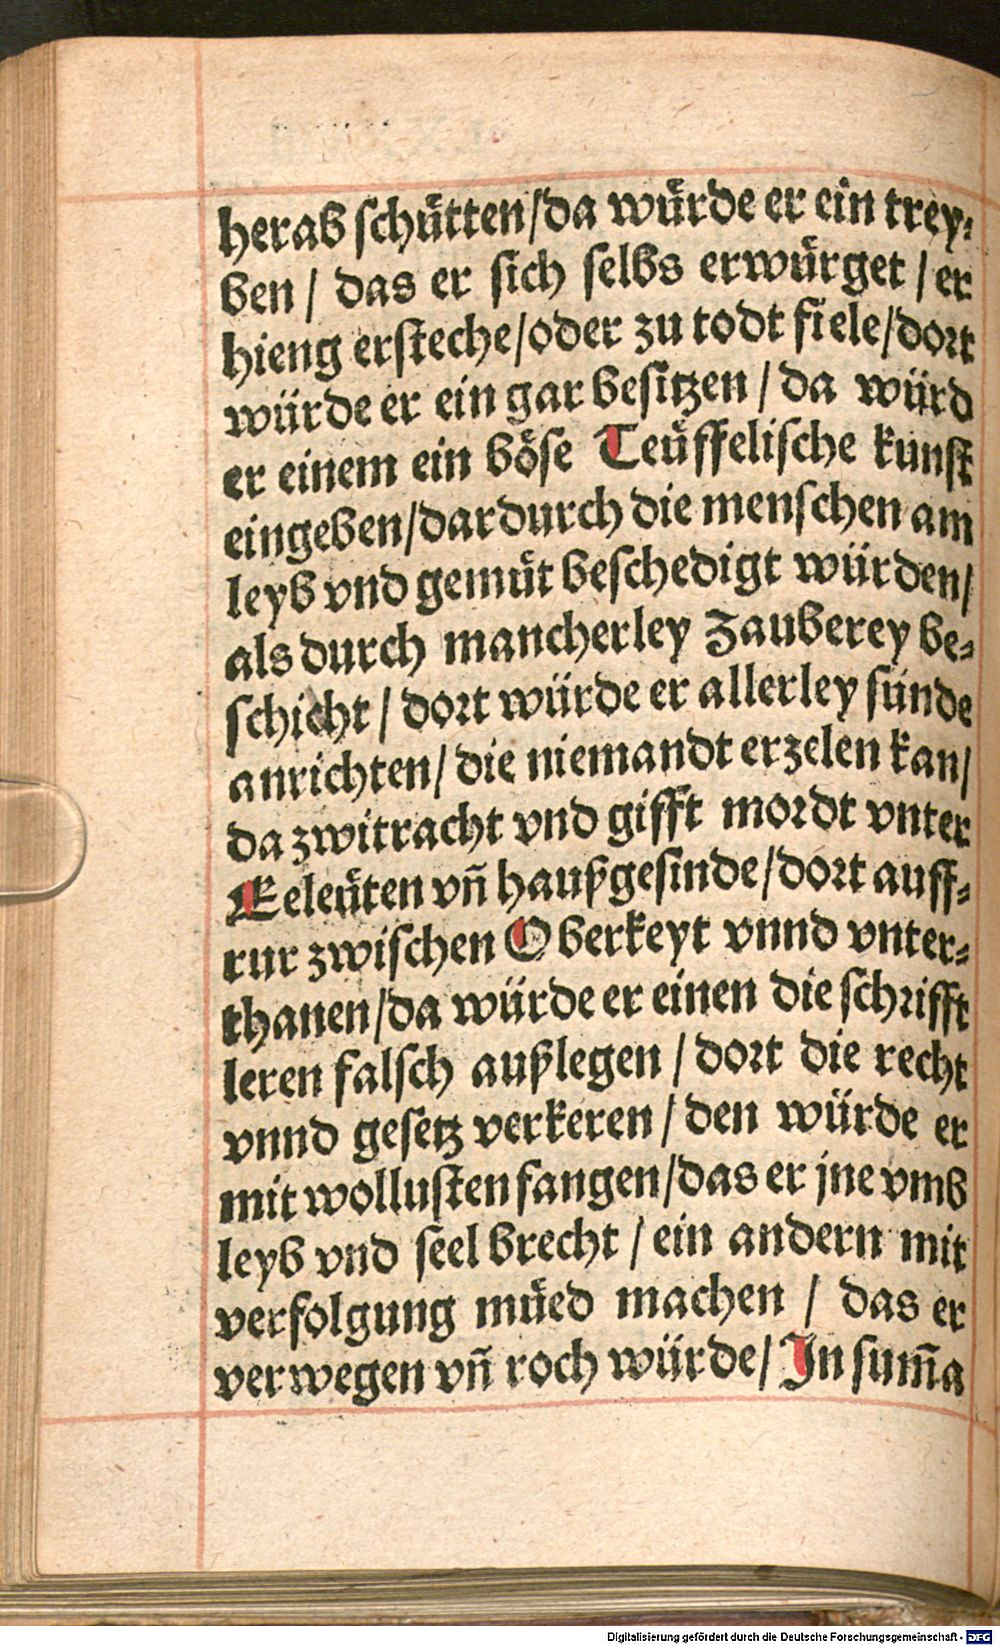 herab schuͤtten/da wuͤrde er ein trey⸗
ben / das er sich selbs erwuͤrget / er
hieng ersteche/oder zu todt fiele/dort
wuͤrde er ein gar besitzen / da wuͤrd
er einem ein boͤse Teuͤffelische kunst
eingeben/dardurch die menschen am
leyb vnd gemuͤt beschedigt wuͤrden/
als durch mancherley Zauberey be⸗
schicht / dort wuͤrde er allerley sünde
anrichten/ die niemandt erzelen kan/
da zwitracht vnd gifft mordt vnter
Eeleuͤten vn̄ haußgesinde/dort auff⸗
rur zwischen Oberkeyt vnnd vnter⸗
thanen/da wuͤrde er einen die schrifft
leren falsch außlegen / dort die recht
vnnd gesetz verkeren / den wuͤrde er
mit wollusten fangen/das er jne vmb
leyb vnd seel brecht / ein andern mit
verfolgung muͤed machen / das er
verwegen vn̄ roch wuͤrde/ In sum̄a
Digitalisierung gefördert durch die Deutsche Forschungsgemeinschaft - DFG